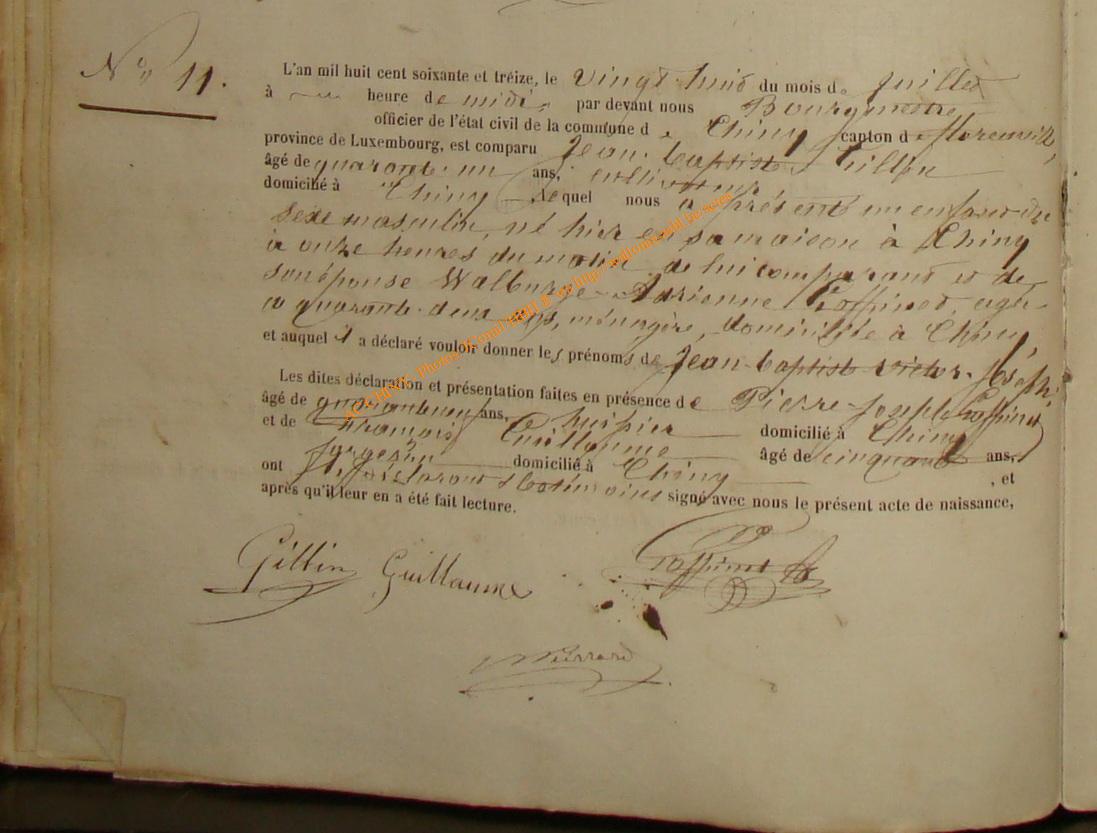 N° 11.
L'an mil huit cent soixante et treize, le vingt huit du mois de Juillet
à heure de midi, par devant nous Bourgmestre
officier de l'état civil de la commune de Chiny canton de florenville,
province de Luxembourg, est comparu Jean-baptiste
âgé de quarante un ans, cultivateur
domicilié à Chiny lequel nous a présenté un enfant du
sexe masculin, né hier en sa maison à Chiny
à onze heures du matin de lui comparant et de
son épouse Walburge-Adrienne Goffinet, agée
quarante deux ans, ménagère, domiciliée à Chiny,
et auquel il a déclaré vouloir donner les prénoms de Jean-baptiste victor-Joseph.
Les dites déclaration et présentation faites en présence de Pierre-Joseph Goffinet
âgé de ans, huissier domicilié à Chiny
et de françois Guillaume âgé de cinquante ans,
domicilié à Chiny , et
ont déclarant témoins signé avec nous le présent acte de naissance,
après qu'il leur en a été fait lecture.
Guillaume Goffinet